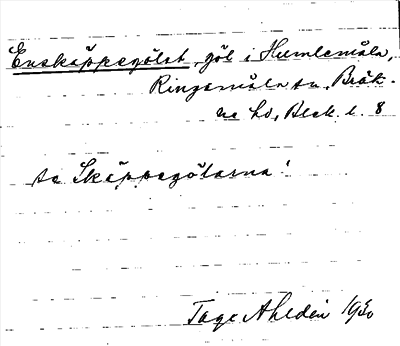 Enskäppegölet, göl i Humlemåla,
Ringamåla sn, Bräk-
ne hd, Blek. l. 8
se Skäppegölarna!
Tage Ahldén 1930